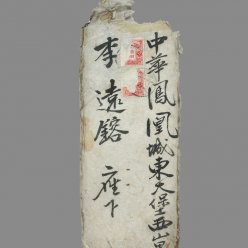 中華鳳凰城東大堡西崴
李遠鎔 座下